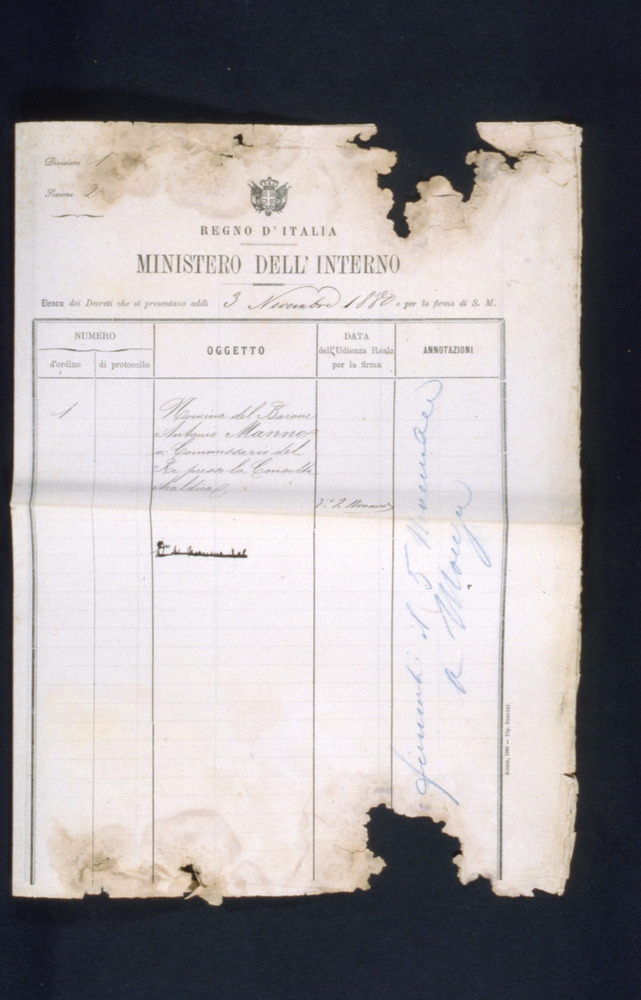 Divisione 1
Sezione 2
REGNO D'ITALIA
MINISTERO DELL'INTERNO
Elenco dei Decreti che si presentano addì 3 Novembre 1880, per la firma di S. M.
NUMERO
d'ordine
di protocollo
OGGETTO
DATA
dell'Udienza Reale
per la firma
ANNOTAZIONI
1
Nomina del Barone
Antonio Manno
a Commissario del
Re presso la Consulta
Araldica
firmati il 5 Novembre
a Monza
Roma, 1880 — Tip.